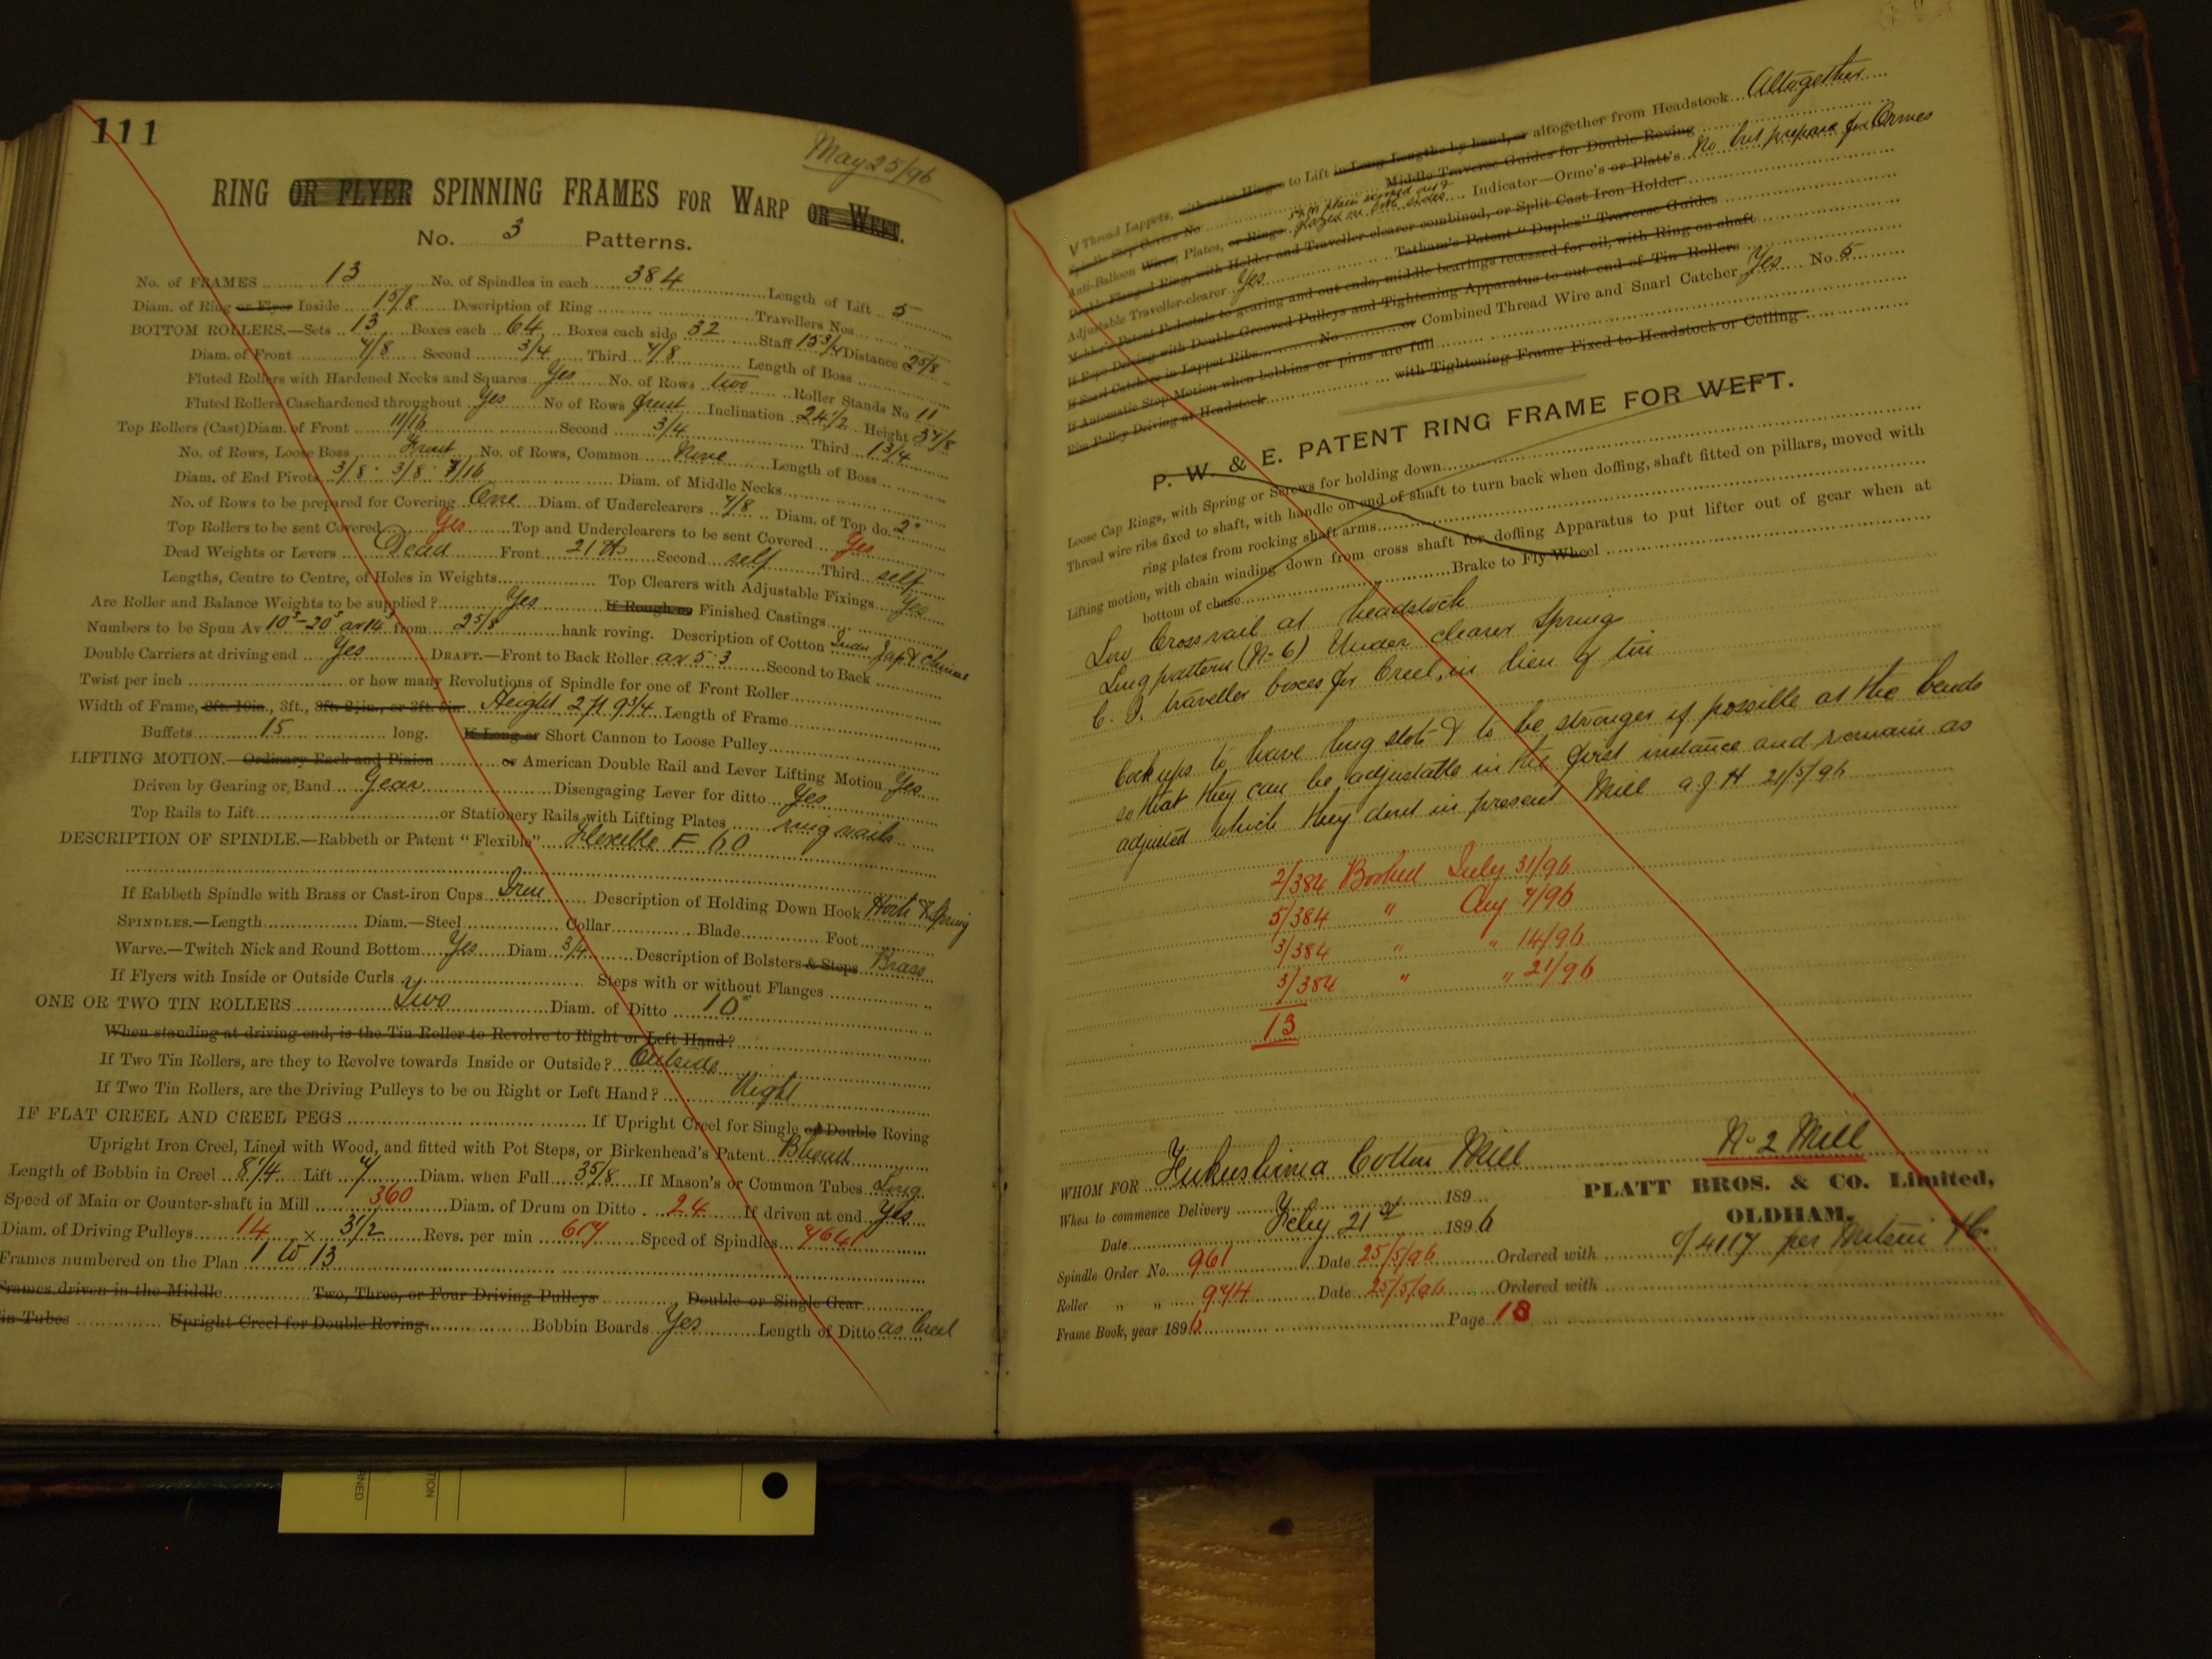 111
May 25/96
RING OR FLYER SPINNING FRAMES FOR WARP OR WEFT.
No. 3 Patterns.
No. of FRAMES 13 No. of Spindles in each 384 Length of Lift 5
Diam. of Ring or Flyer Inside 1 5/8 Description of Ring Travellers Nos
BOTTOM ROLLERS.—Sets 13 Boxes each 64 Boxes each side 32 Staff 15 3/4 Distance 2 5/8
Diam. of Front 7/8 Second 3/4 Third 7/8 Length of Boss
Fluted Rollers with Hardened Necks and Squares Yes No. of Rows two Roller Stands No 11
Fluted Rollers Casehardened throughout Yes No of Rows front Inclination 24 1/2 Height 3 7/8
Top Rollers (Cast) Diam. of Front 11/16 Second 3/4 Third 1 3/4
No. of Rows, Loose Boss Front No. of Rows, Common None Length of Boss
Diam. of End Pivots 3/8 · 3/8 · 7/16 Diam. of Middle Necks
No. of Rows to be prepared for Covering One Diam. of Underclearers 7/8 Diam. of Top do. 2"
Top Rollers to be sent Covered Yes Top and Underclearers to be sent Covered Yes
Dead Weights or Levers Dead Front 21 lbs Second self Third self
Lengths, Centre to Centre, of Holes in Weights Top Clearers with Adjustable Fixings Yes
Are Roller and Balance Weights to be supplied? Yes If Rough or Finished Castings
Numbers to be Spun Av 10s–20s av 14s from 2 5/8 hank roving. Description of Cotton India Jap & Chinese
Double Carriers at driving end Yes DRAFT.—Front to Back Roller av 5·3 Second to Back
Twist per inch or how many Revolutions of Spindle for one of Front Roller
Width of Frame, 2ft. 10in., 3ft., 3ft. 2½in., or 3ft. 5in. Height 2 ft 9 3/4 Length of Frame
Buffets 15 long. If Long or Short Cannon to Loose Pulley
LIFTING MOTION.—Ordinary Rack and Pinion or American Double Rail and Lever Lifting Motion Yes
Driven by Gearing or Band Gear Disengaging Lever for ditto Yes
Top Rails to Lift or Stationery Rails with Lifting Plates ring rails
DESCRIPTION OF SPINDLE.—Rabbeth or Patent "Flexible" Flexible F 60
If Rabbeth Spindle with Brass or Cast-iron Cups Iron Description of Holding Down Hook Hook & Spring
SPINDLES.—Length Diam.—Steel Collar Blade Foot
Warve.—Twitch Nick and Round Bottom Yes Diam 3/4 Description of Bolsters & Steps Brass
If Flyers with Inside or Outside Curls Steps with or without Flanges
ONE OR TWO TIN ROLLERS Two Diam. of Ditto 10"
When standing at driving end, is the Tin Roller to Revolve to Right or Left Hand?
If Two Tin Rollers, are they to Revolve towards Inside or Outside? Outside
If Two Tin Rollers, are the Driving Pulleys to be on Right or Left Hand? Right
IF FLAT CREEL AND CREEL PEGS If Upright Creel for Single or Double Roving
Upright Iron Creel, Lined with Wood, and fitted with Pot Steps, or Birkenhead's Patent B'head
Length of Bobbin in Creel 8 1/4 Lift 7 Diam. when Full 3 5/8 If Mason's or Common Tubes Long
Speed of Main or Counter-shaft in Mill 360 Diam. of Drum on Ditto 24 If driven at end Yes
Diam. of Driving Pulleys 14 × 3 1/2 Revs. per min 617 Speed of Spindles 7464
Frames numbered on the Plan 1 to 13
Frames driven in the Middle Two, Three, or Four Driving Pulleys Double or Single Gear
Tin Tubes Upright Creel for Double Roving Bobbin Boards Yes Length of Ditto as Creel
V Thread Lappets, with extra Hinges to Lift in Long Lengths by hand, or altogether from Headstock Altogether
Spindle Step Covers No Middle Traverse Guides for Double Roving
Anti-Balloon Wires, Plates, or Rings Indicator—Orme's or Platt's No but prepare for Ormes
Double Flanged Ring, with Holder and Traveller-clearer combined, or Split Cast Iron Holder
Adjustable Traveller-clearer Yes Tatham's Patent "Duplex" Traverse Guides
Mohler's Patent Pedestals to gearing and out ends, middle bearings recessed for oil, with Ring on shaft
If Rope Driving with Double Grooved Pulleys and Tightening Apparatus to out end of Tin Rollers
If Snarl Catchers in Lappet Ribs No or Combined Thread Wire and Snarl Catcher Yes No. 5
If Automatic Stop Motion when bobbins or pirns are full
Rim Pulley Driving at Headstock with Tightening Frame Fixed to Headstock or Ceiling
P. W. & E. PATENT RING FRAME FOR WEFT.
Loose Cap Rings, with Spring or Screws for holding down
Thread wire ribs fixed to shaft, with handle on end of shaft to turn back when doffing, shaft fitted on pillars, moved with
ring plates from rocking shaft arms
Lifting motion, with chain winding down from cross shaft for doffing Apparatus to put lifter out of gear when at
bottom of chase Brake to Fly Wheel
Low Cross rail at headstock
Long pattern (No 6) Under clearer Spring
C. I. traveller boxes for Creel, in lieu of tin
Cock ups to have long slot & to be stronger if possible at the bends
so that they can be adjustable in the first instance and remain as
adjusted which they dont in present Mill a.J.H 21/5/96
2/384 Booked July 31/96
5/384 " Aug 7/96
3/384 " " 14/96
3/384 " " 21/96
13
WHOM FOR Fukushima Cotton Mill No 2 Mill
When to commence Delivery 189
PLATT BROS. & CO. Limited,
OLDHAM.
Date Feby 21st 1896
Spindle Order No. 961 Date 25/5/96 Ordered with o/4117 per Mitsui & Co
Roller " " 974 Date 25/5/96 Ordered with
Frame Book, year 1896 Page 18